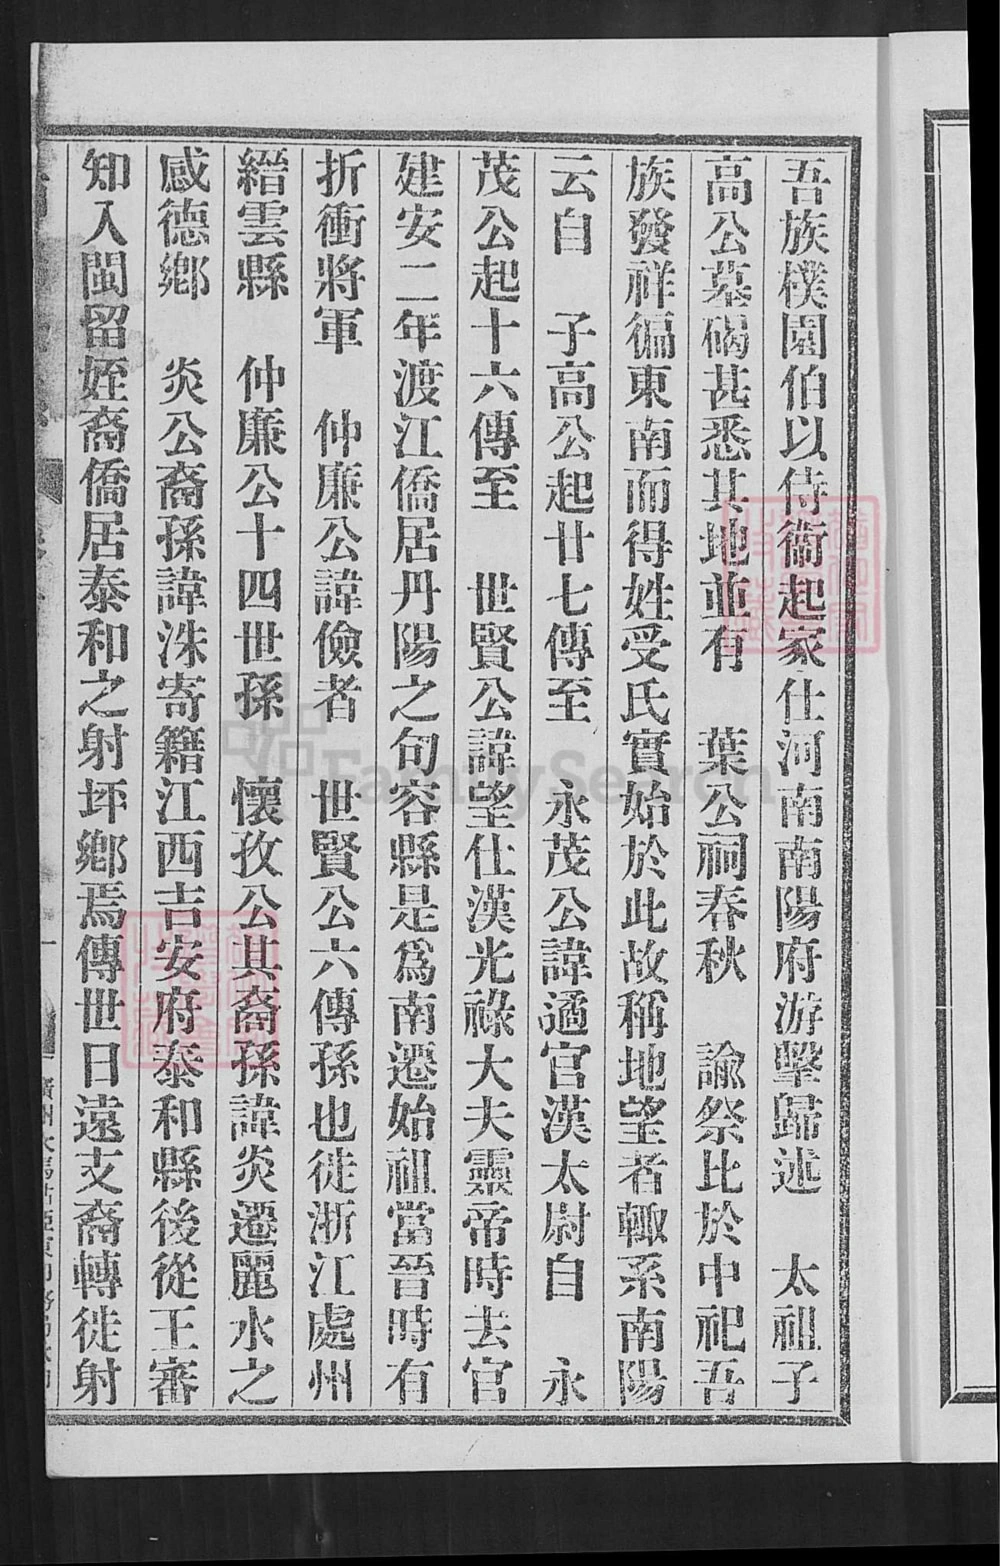 吾族樸園伯以侍衞起家仕河南南陽府游擊歸述　太祖子
高公墓碣甚悉其地並有　葉公祠春秋　諭祭比於中祀吾
族發祥徧東南而得姓受氏實始於此故稱地望者輙系南陽
云自　子高公起廿七傳至　永茂公諱遹官漢太尉自　永
茂公起十六傳至　世賢公諱望仕漢光祿大夫靈帝時去官
建安二年渡江僑居丹陽之句容縣是爲南遷始祖當晉時有
折衝將軍　仲廉公諱儉者　世賢公六傳孫也徙浙江處州
縉雲縣　仲廉公十四世孫　懷孜公其裔孫諱炎遷麗水之
感德鄉　炎公裔孫諱洙寄籍江西吉安府泰和縣後從王審
知入閩留姪裔僑居泰和之射坏鄉焉傳世日遠支裔轉徙射
FamilySearch